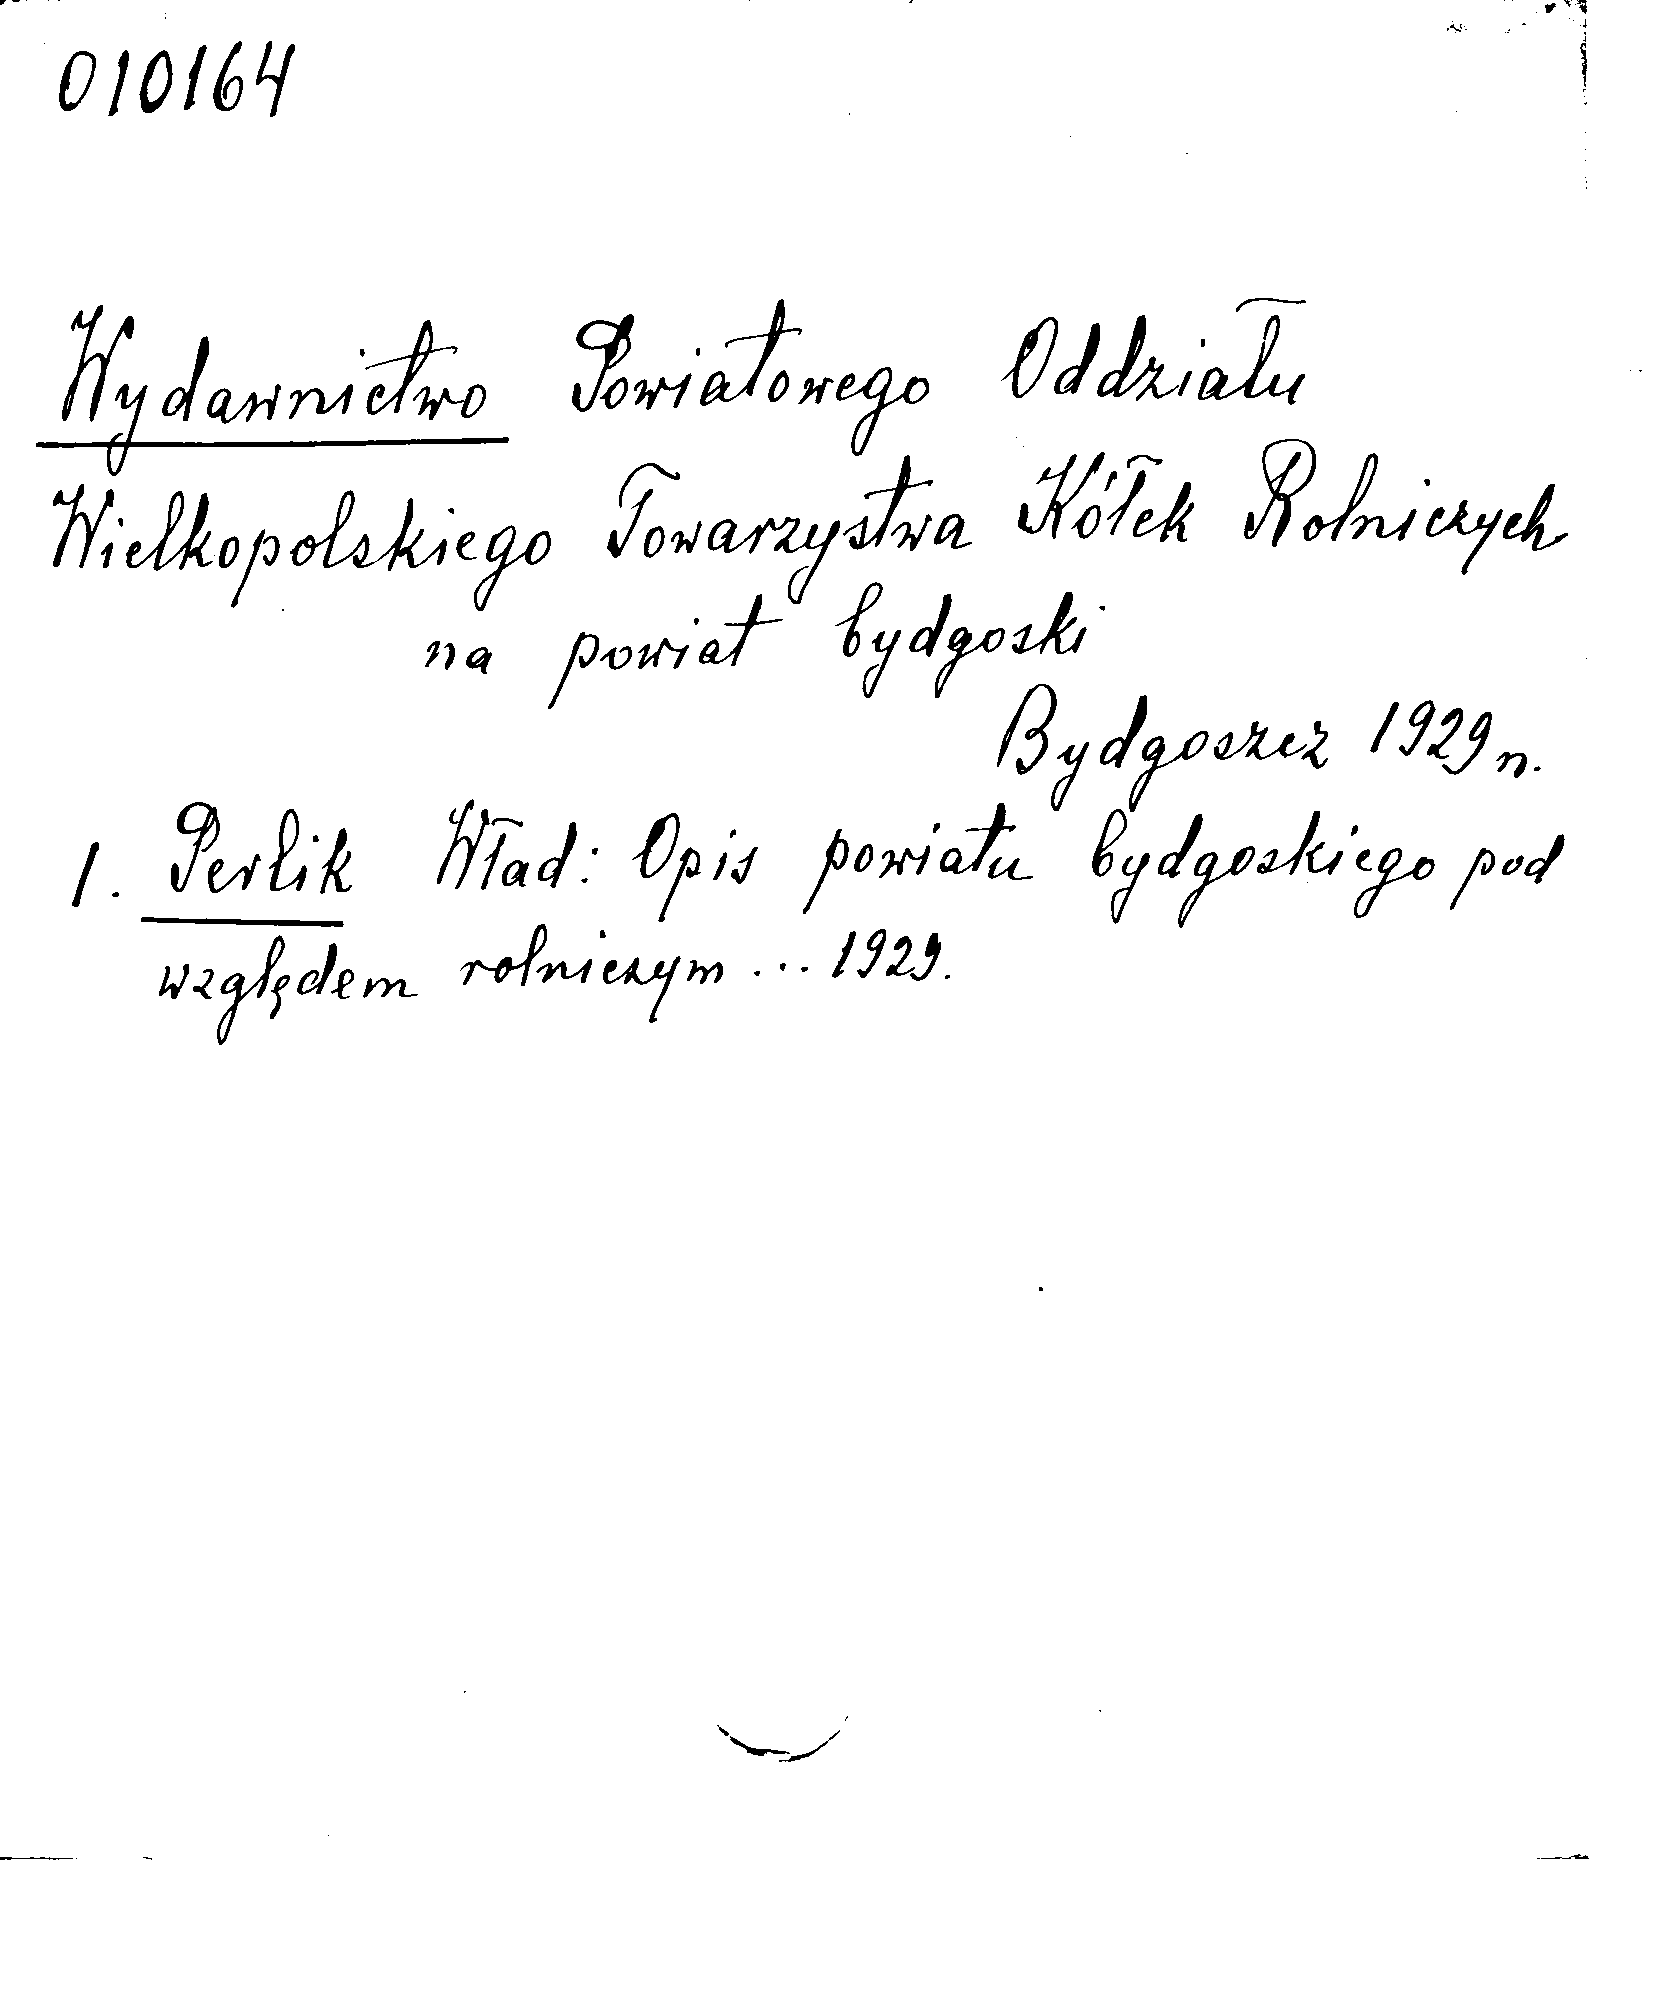 010164
Wydawnictwo Powiatowego Oddziału
Wielkopolskiego Towarzystwa Kółek Rolniczych
na powiat bydgoski
Bydgoszcz 1929 n.
1. Perlik Wład: Opis powiatu bydgoskiego pod
względem rolniczym ... 1929.